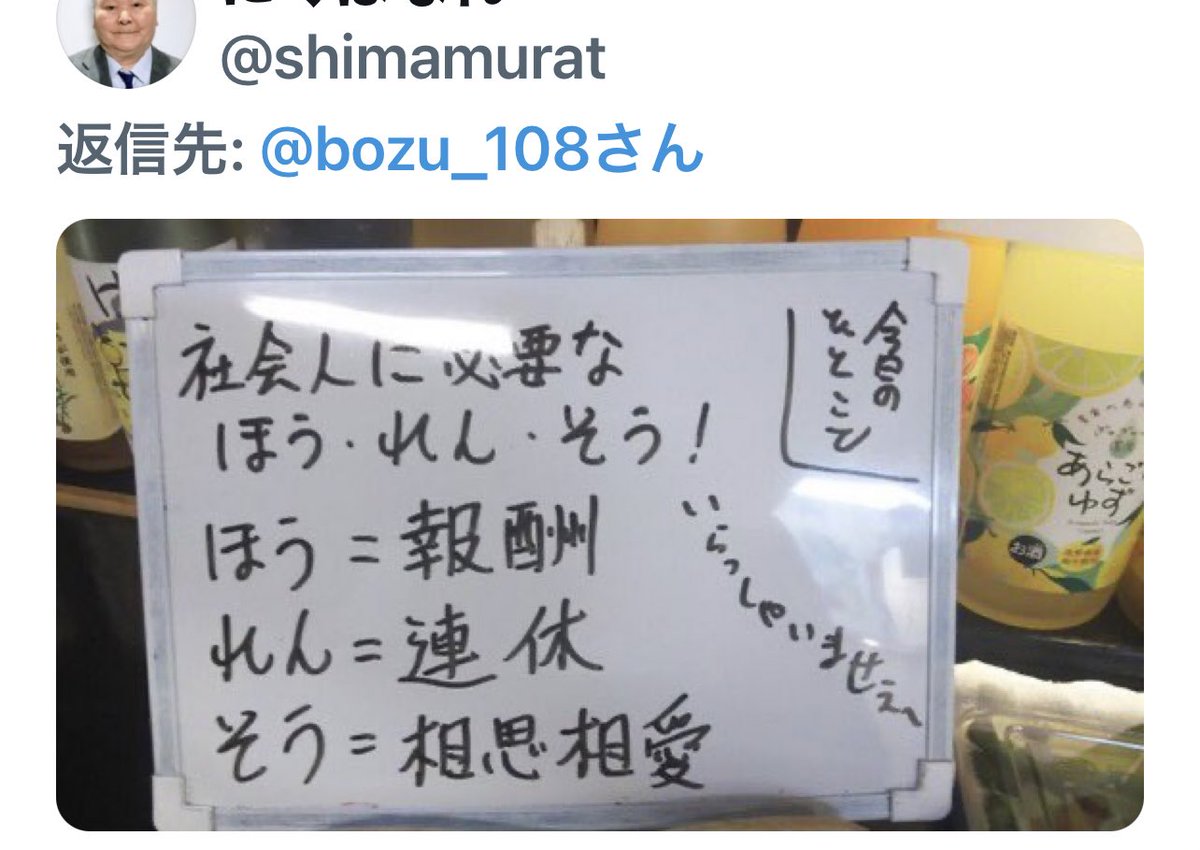 @shimamurat
返信先: @bozu_108さん
今日の
ひとこと
社会人に必要な
ほう・れん・そう!
ほう=報酬
れん=連休
そう=相思相愛
いらっしゃいませえ〜
あらごし
ゆず
お酒